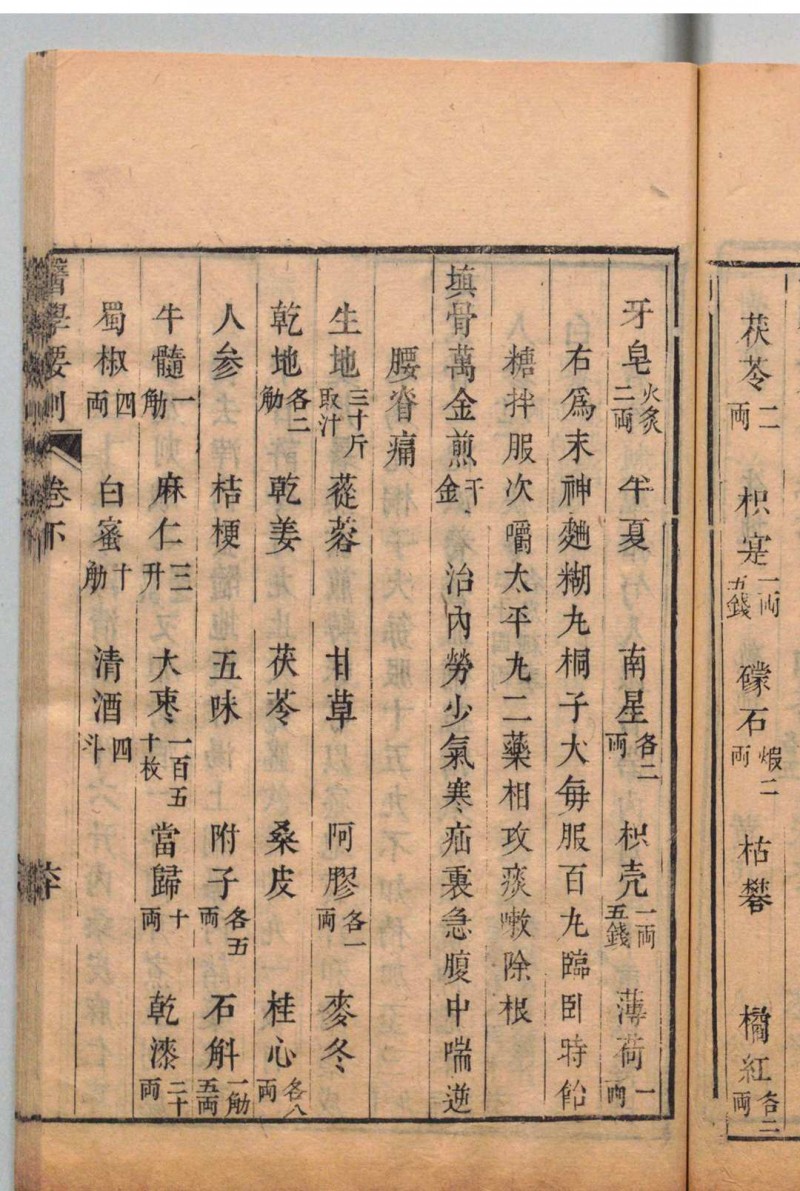 茯苓二両 枳寔一両五錢 礞石煅二両 枯礬 橘紅各二両
牙皂火炙二両 半夏 南星各二両 枳壳一両五錢 薄荷一両
右爲末神麯糊丸桐子大每服百丸臨卧時飴
糖拌服次嚼太平丸二藥相攻痰嗽除根
塡骨萬金煎千金 治內勞少氣寒疝裏急腹中喘逆
腰脊痛
生地三十斤取汁 蓯蓉 甘草 阿膠各一両 麥冬
乾地各二觔 乾姜 茯苓 桑皮 桂心各八両
人参 桔梗 五味 附子各五両 石斛一觔五両
牛髓一觔 麻仁三升 大棗一百五十枚 當歸十両 乾漆二十両
蜀椒四両 白蜜十觔 清酒四斗
醫學要則 卷下